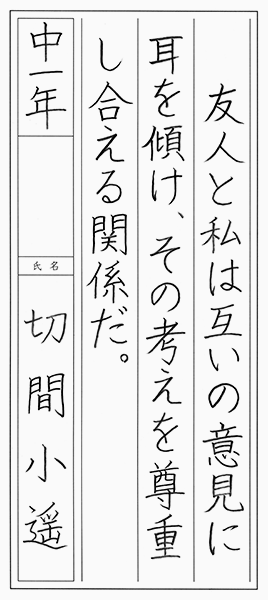 友人と私は互いの意見に
耳を傾け、その考えを尊重
し合える関係だ。
中一年
氏名
切間小遥